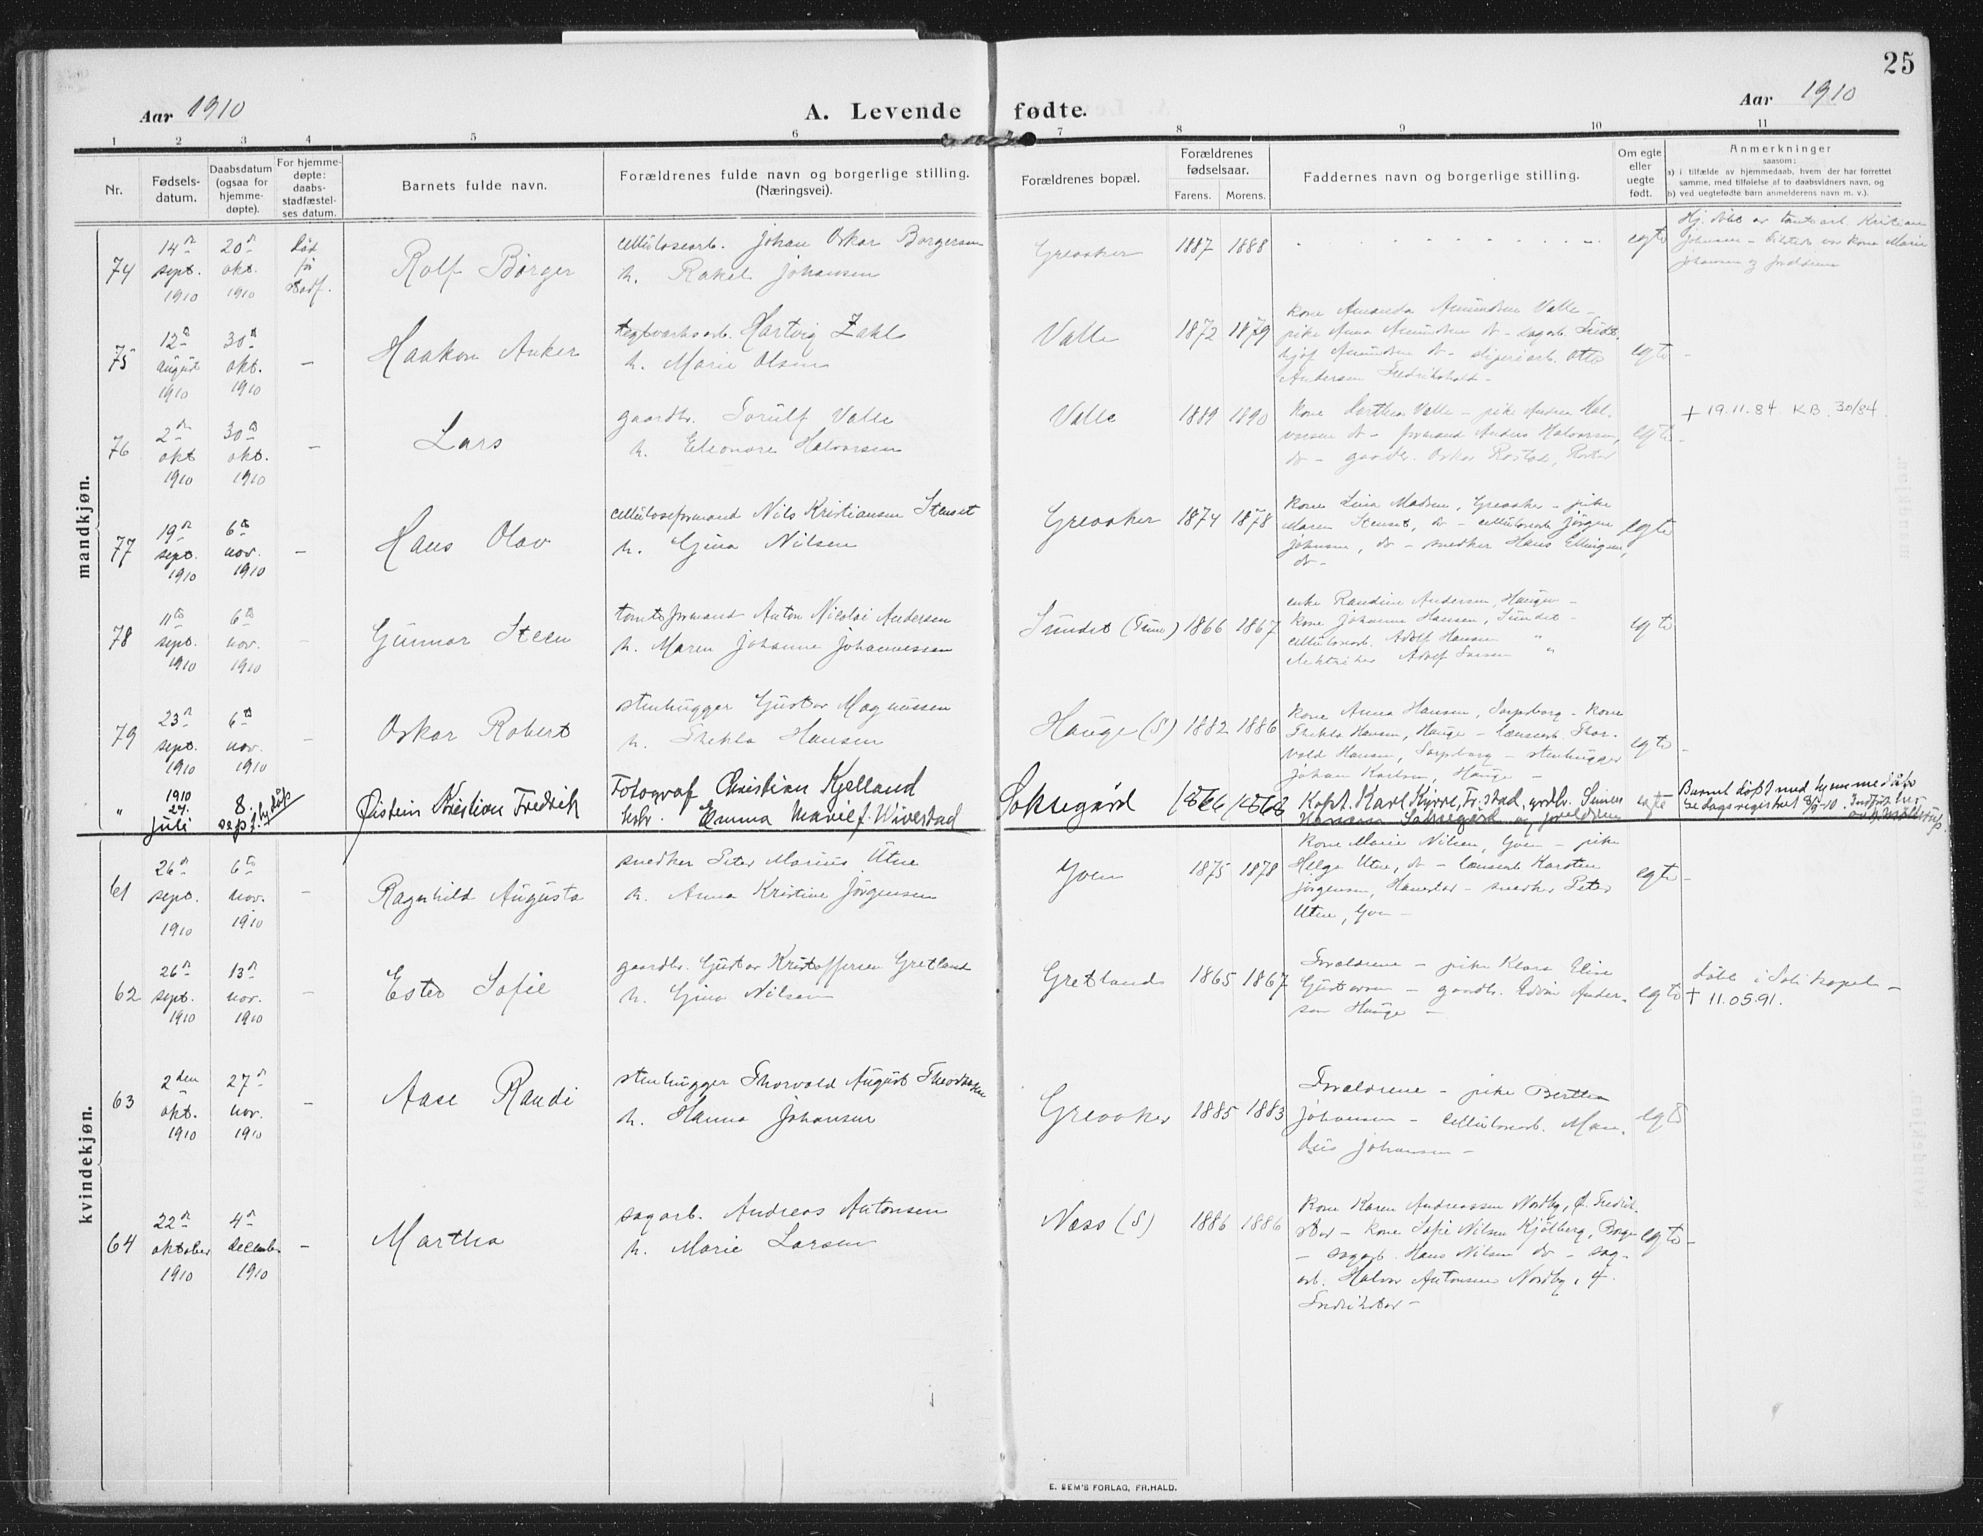 25
Aar 1910
A. Levende fødte.
Aar 1910
1 2 3 4 5 6 7 8 9 10 11
Nr.
Fødsels-
datum.
Daabsdatum
(ogsaa for
hjemme-
døpte).
For hjemme-
døpte:
daabs-
stadfæstel-
ses datum.
Barnets fulde navn.
Forældrenes fulde navn og borgerlige stilling.
(Næringsvei).
Forældrenes bopæl.
Forældrenes
fødselsaar.
Farens. Morens.
Faddernes navn og borgerlige stilling.
Om egte
eller
uegte
født.
Anmerkninger
saasom:
a) i tilfælde av hjemmedaab, hvem der har forrettet
samme, med tilføielse af to daabsvidners navn, og
b) ved uegtefødte barn anmelderens navn m. v.).
mandkjøn.
74
14de sept. 1910
20de okt. 1910
død
før
stadf.
Rolf Børger
cellulosearb. Johan Oskar Borgersen
h. Rakel Johansen
Greaaker
1887 1888
egte
Hj. døbt av Kristian
Johansen – kone Marie
Johansen og forældrene
75
12te august 1910
30te okt. 1910
–
Haakon Anker
teglverksarb. Hartvig Zahl
h. Marie Olsen
Valle
1872 1879
kone Amanda Amundsen Valle –
pike Anna Amundsen do – sagarb. Fridt-
hjof Amundsen do – sliperiarb. Otto
Andersen Fredrikshald –
egte –
76
2den okt 1910
30te okt. 1910
–
Lars
gaardbr. Torulf Valle
h. Eleonore Halvorsen
Valle
1889 1890
kone Berthea Valle – pike Andrea Hal-
vorsen do – formand Anders Halvorsen,
do – gaardbr. Oskar
egte –
+ 19.11.84. KB. 30/84.
77
19de sept. 1910
6te nov. 1910
–
Hans Olav
celluloseformand Nils Kristiansen Stenset
h. Gjina Nilsen
Greaaker
1874 1878
kone Lina Madsen, Greaaker – pike
Maren Stenset, do – cellulosearb. Jörgen
Johansen, do – snedker Hans Ellingsen,
do –
egte
78
11te sept. 1910
6te nov. 1910
–
Gunnar Steen
tomteformand Anton Nicolai Andersen
h. Maren Johanne Johannessen
Sundet (Tune)
1866 1867
enke Randine Andersen, Haugen –
kone Johanne Hansen, Sundet –
cellulosearb. Adolf Hansen "
elektriker Adolf Larsen "
egte
79
23de sept. 1910
6te nov. 1910
–
Oskar Robert
stenhugger Gustav Magnussen
h. Thekla Hansen
Hauge (S)
1882 1886
kone Anna Hansen, Sarpsborg – kone
Thekla Hansen, Hauge – lænsearb. Thor-
vald Hansen, Sarpsborg – stenhugger
Johan Karlsen, Hauge –
egte –
"
1910
27.
juli
8.
sept. f. hj. dåp
Øistein Kristian Fredrik
Fotograf Christian Kjelland
hsbr. Emma Marie f. Wivestad
Soknegård
1866 1868
Kapt. Karl Kyrre, Fr.stad, grdbr. Simen
Hansen Soknegård og foreldrene
egte
Barnet døpt med hjemmedåp
Se dagsregistret 8/9-10. Indført her
kvindekjøn.
61
26de sept. 1910
6te nov. 1910
–
Ragnhild Augusta
snedker Peter Marius Utne
h. Anna Kristine Jørgensen
Yven
1875 1878
kone Marie Nilsen, Yven – pike
Helga Utne, do – lænsearb. Karsten
Jörgensen, Hannestad – snedker Peter
Utne, Yven –
egte –
62
26de sept. 1910
13de nov. 1910
–
Ester Sofie
gaardbr. Gustav Kristoffersen Gretland
h. Gjina Nilsen
Gretland
1865 1867
Forældrene – pike Klara Elise
Gustavsen – gaardbr. Edvin Ander-
sen Hauge –
egte
Døbt i Soli kapel –
+ 11.05.91.
63
2den okt. 1910
27de nov. 1910
–
Aase Randi
stenhugger Thorvald August Theodorsen
h. Hanna Johansen
Greaaker
1885 1883
Forældrene – pike Berthea
Johansen – cellulosearb. Man-
dius Johansen –
egte
64
22de oktober 1910
4de december 1910
–
Martha
sagarb. Andreas Antonsen
h. Marie Larsen
Næss (S)
1886 1886
kone Karen Andreassen Nordby, Ø. Fredrik-
stad – kone Sofie Nilsen Kjölberg, Borge
– sagarb. Hans Nilsen do – sag-
arb. Halvor Antonsen Nordby, Ø.
Fredrikstad –
egte –
E. SEM'S FORLAG, FR.HALD.